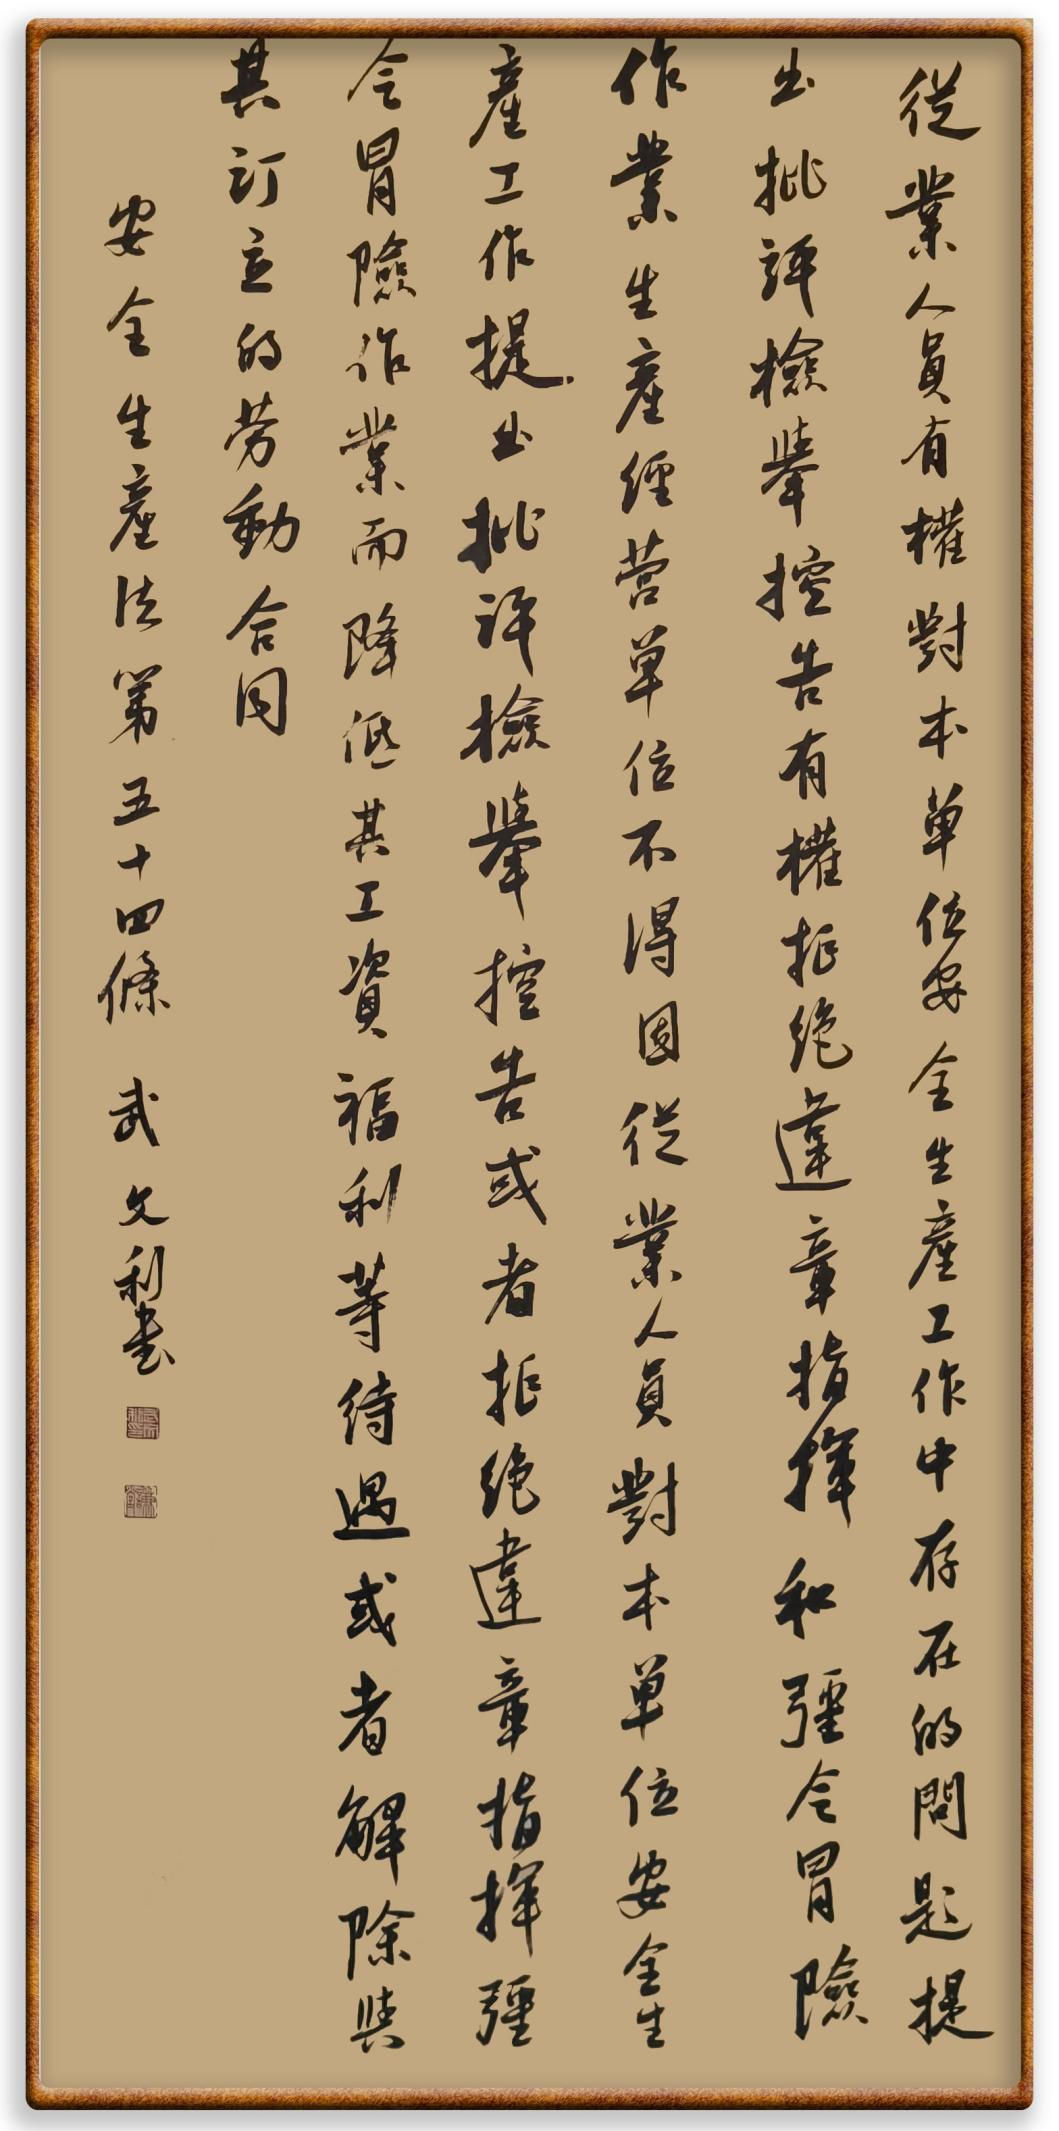 從業人員有權對本單位安全生產工作中存在的問題提
出批評檢舉控告有權拒絕違章指揮和彊令冒險
作業生產經營單位不得因從業人員對本單位安全生
產工作提出批評檢舉控告或者拒絕違章指揮彊
令冒險作業而降低其工資福利等待遇或者解除與
其訂立的勞動合同
安全生產法第五十四條 武文利書